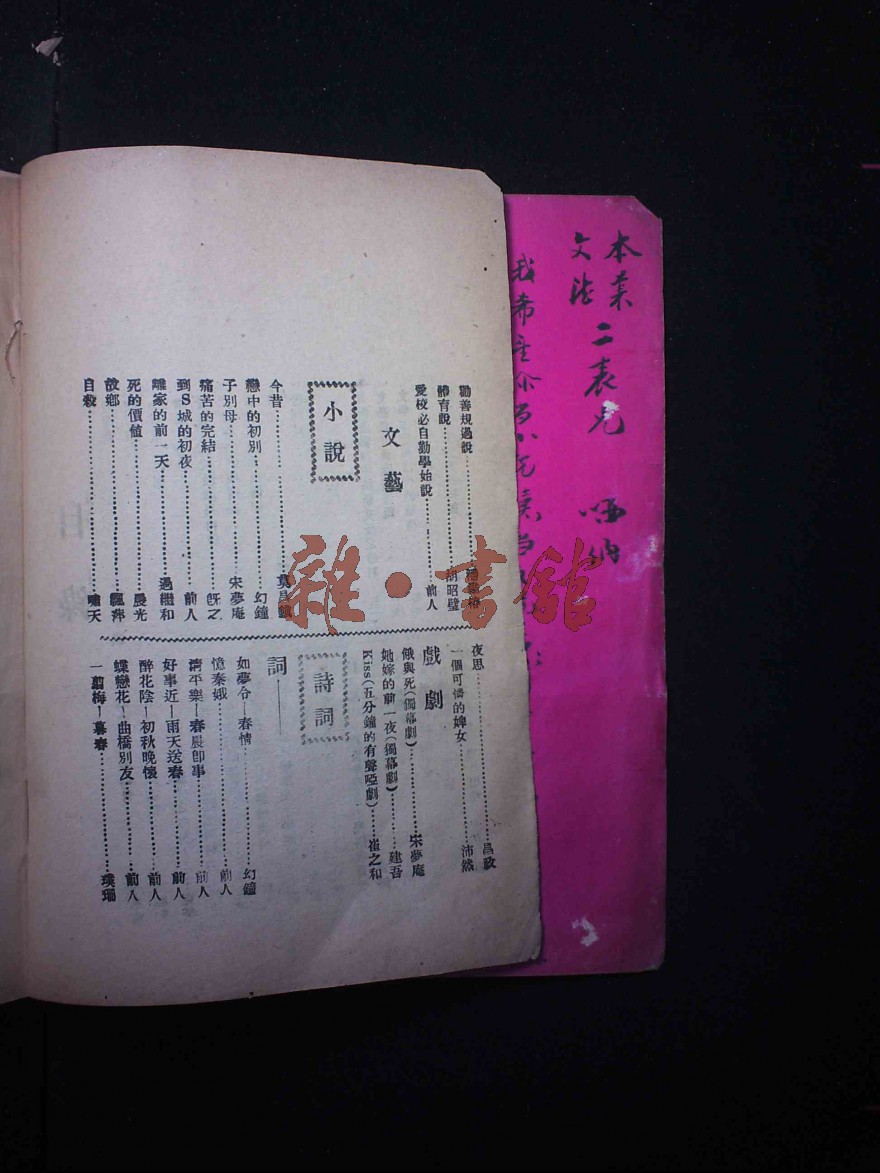 勸善規過說
體育說……胡昭璧
愛校必自勤學始說……前人
文藝
小說
今昔……莫昌鎮
戀中的初別……幻鐘
子別母……宋夢庵
痛苦的完結……既之
到S城的初夜……前人
離家的前一天……過繼和
死的價值……晨光
故鄉……飄萍
自殺……嘯天
夜思……昌政
一個可憐的婢女……沛然
戲劇
餓與死(獨幕劇)……宋夢庵
她嫁的前一夜(獨幕劇)……建吾
Kiss(五分鐘的有聲啞劇)……崔之和
詩詞
詞——
如夢令—春情……幻鐘
憶秦娥……前人
清平樂—春晨卽事……前人
好事近—雨天送春……前人
醉花陰—初秋晚懷……前人
蝶戀花—曲橋別友……前人
一剪梅—暮春……璞瑞
目錄
本業
文法
二表兄
哂納
我希
雜·書館